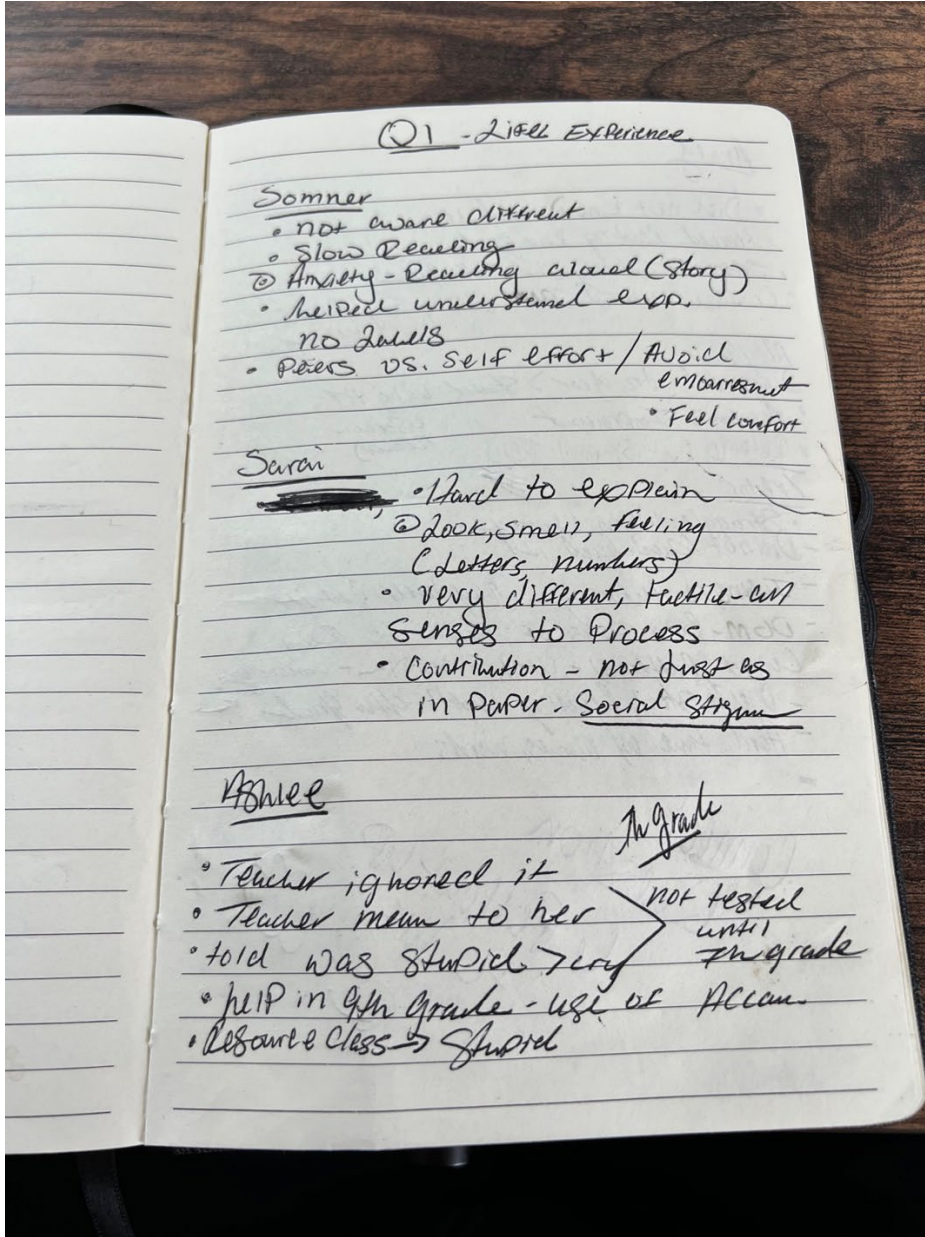 Q1 - Lifel Experience
Somner
• not aware different
• Slow Reading
• Anxiety - Reading aloud (Story)
• helped understand exp.
no Labels
• Peers vs. Self effort / Avoid
embarresmet
• Feel comfort
Sarai
• Hard to explain
• Look, smell, feeling
(Letters, numbers)
• very different, tactile - all
senses to Process
• Contribution - not Just as
in paper - Social Stigma
Ashlee
7th grade
• Teacher ighored it
• Teacher mean to her
not tested
until
7th grade
• told was stupid > cry
• help in 9th grade - use of Accom.
• Resource Class → Stupid